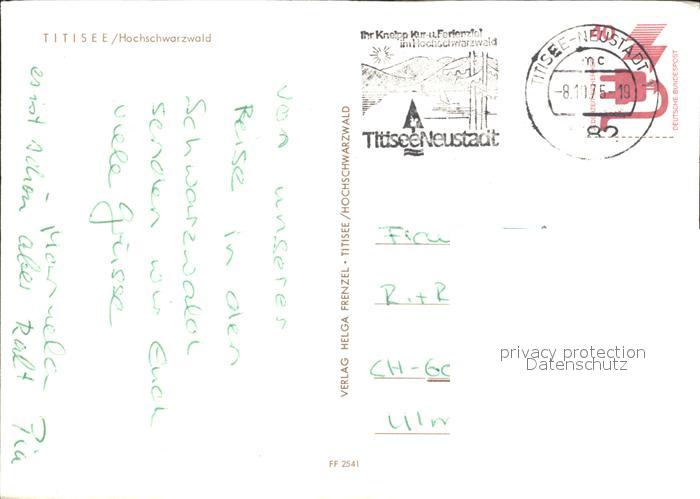 TITISEE/Hochschwarzwald
Von unserer
Reise in den
Schwarzwald
senden wir Euch
viele Grüsse
Manuela
es ist schön aber kalt Pia
VERLAG HELGA FRENZEL · TITISEE/HOCHSCHWARZWALD
FF 2541
Ihr Kneipp Kur-u. Ferienziel
im Hochschwarzwald
Titisee Neustadt
TITISEE-NEUSTADT
mc
-8.10.75-19
82
DEUTSCHE BUNDESPOST
Frau
R.+R
CH-
Ulm
privacy protection
Datenschutz